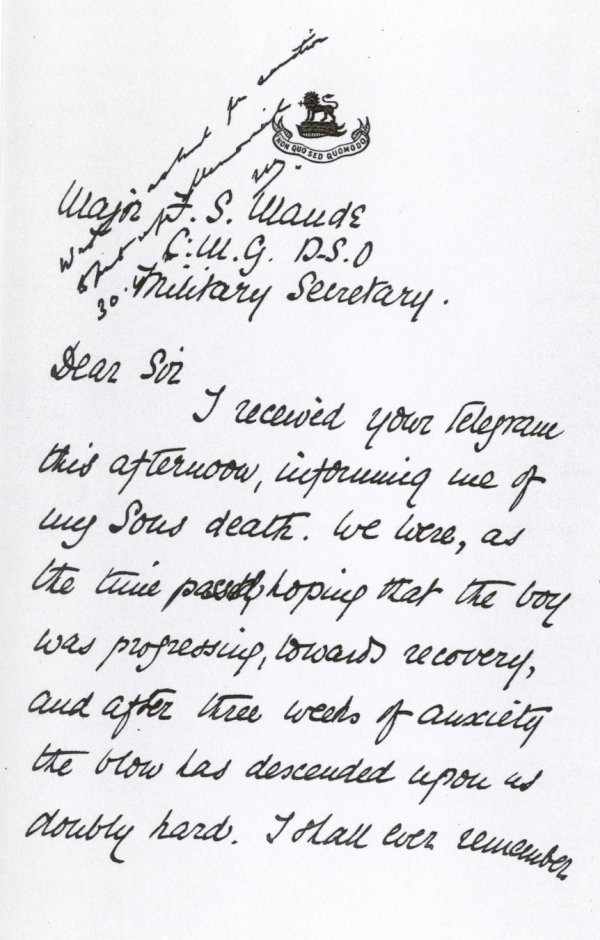 NON QUO SED QUOMODO
Major F. S. Maude
C.M.G. D.S.O
Military Secretary.
30.
Dear Sir
I received your Telegram
this afternoon, informing me of
my Sons death. We were, as
the time passed, hoping that the boy
was progressing, towards recovery,
and after three weeks of anxiety
the blow has descended upon us
doubly hard. I shall ever remember